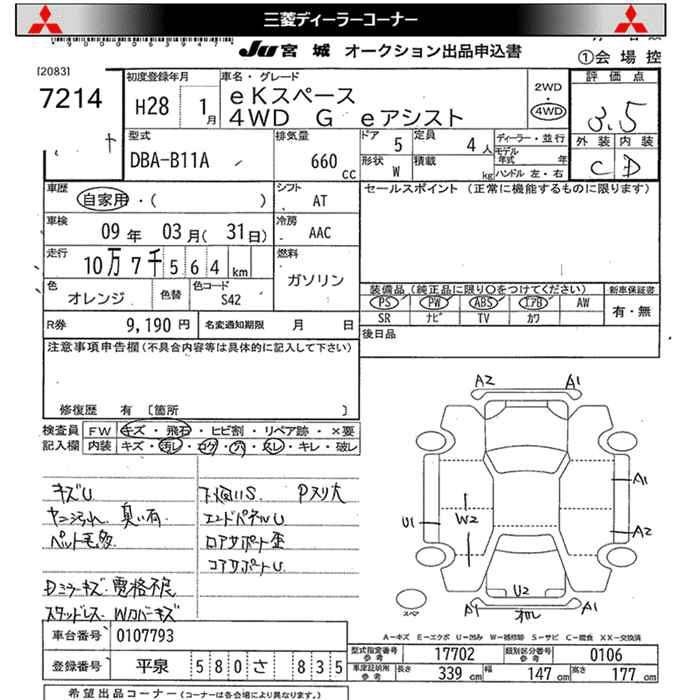 三菱ディーラーコーナー
JU 宮城 オークション出品申込書
①会場控
[2083]
7214
初度登録年月
H28 1月
車名・グレード
eKスペース
4WD G eアシスト
2WD
4WD
評価点
3.5
外装 内装
C D
型式
DBA-B11A
排気量
660 cc
ドア 5
定員 4人
形状 W
積載 kg
ディーラー・並行
モデル年式 年
ハンドル 左・右
車歴
自家用・( )
シフト
AT
セールスポイント (正常に機能するものに限ります)
車検
09年 03月(31日)
冷房
AAC
走行
10万7千564km
燃料
ガソリン
色
オレンジ
色替
色コード
S42
装備品(純正品に限り○をつけてください)
新車保証書
PS PW ABS エアB AW
有・無
SR ナビ TV カワ
R券 9,190円
名変通知期限 月 日
後日品
注意事項申告欄(不具合内容等は具体的に記入して下さい)
修復歴 有 〔箇所 〕
検査員 FW キズ・飛石・ヒビ割・リペア跡・×要
記入欄 内装 キズ・汚レ・コゲ・穴・スレ・キレ・破レ
キズU
ヤニ汚れ、臭い有
ペット毛多
Dミラーキズ 電格不良
スタッドレス Wカバーキズ
下廻りS Pスリ大
エンドパネルU
ロアサポート歪
コアサポートU
A2 A1
A1
U1 W2
A2
U2
スペア
A1 オレ A1
A−キズ E−エクボ U−凹み W−補修跡 S−サビ C−腐食 XX−交換済
車台番号 0107793
型式指定番号 参考 17702
類別区分番号 参考 0106
登録番号 平泉 580 さ 835
車庫証明用 参考 長さ 339cm 幅 147cm 高さ 177cm
希望出品コーナー(コーナーは各会場により異なります。)